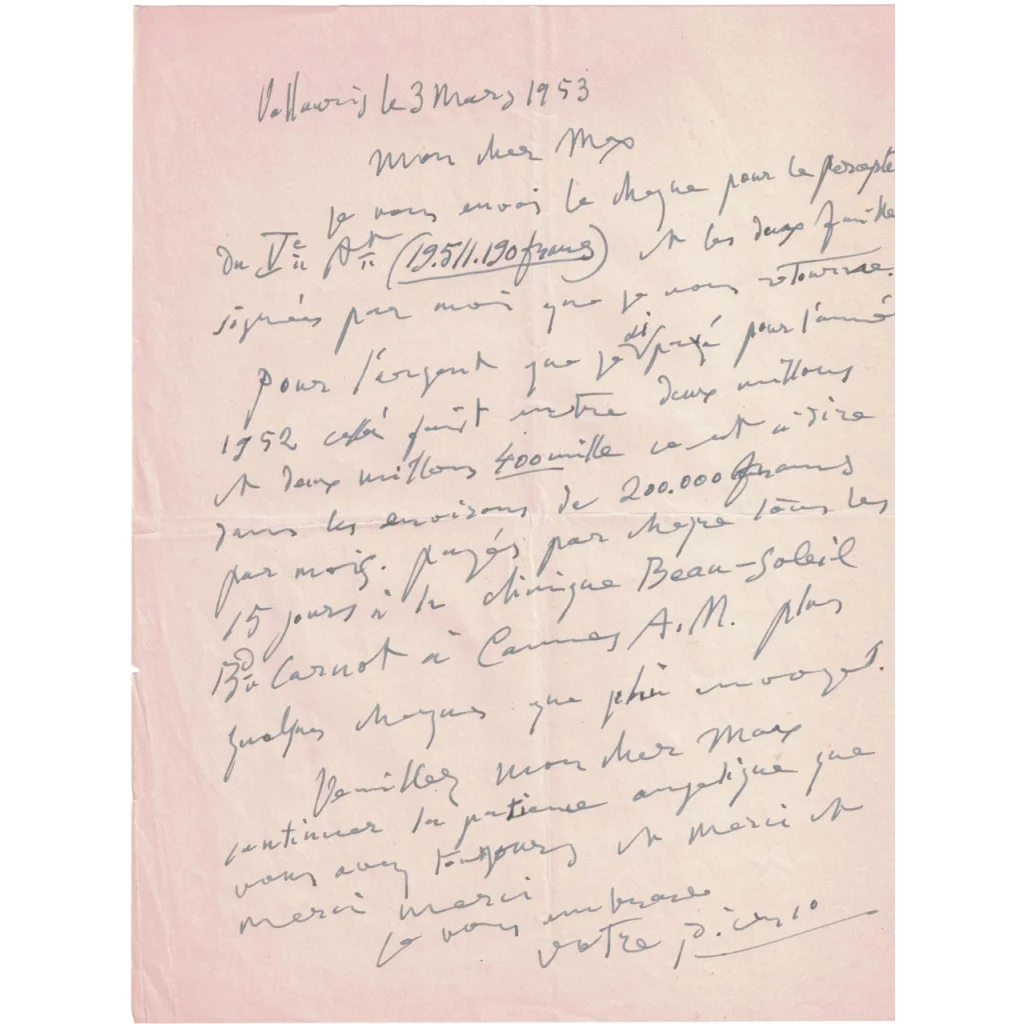 Vallauris le 3 Mars 1953
Mon cher Max
je vous envois le cheque pour le percepte
du Ve Art (19.511.190 francs) et les deux feuille
signées par moi que je vous retourne.
Pour l'argent que je ai payé pour l'année
1952 cella fait entre deux millons
et deux millons 400 mille ce est a dire
dans les environs de 200.000 francs
par mois. payés par cheque tous les
15 jours à la clinique Beau-Soleil
Bd Carnot à Cannes A.M. plus
quelques cheques que j'ai envoyet.
Veuillez mon cher Max
continuer la patience angelique que
vous avez toujours et merci et
merci merci
je vous embrasse
votre Picasso